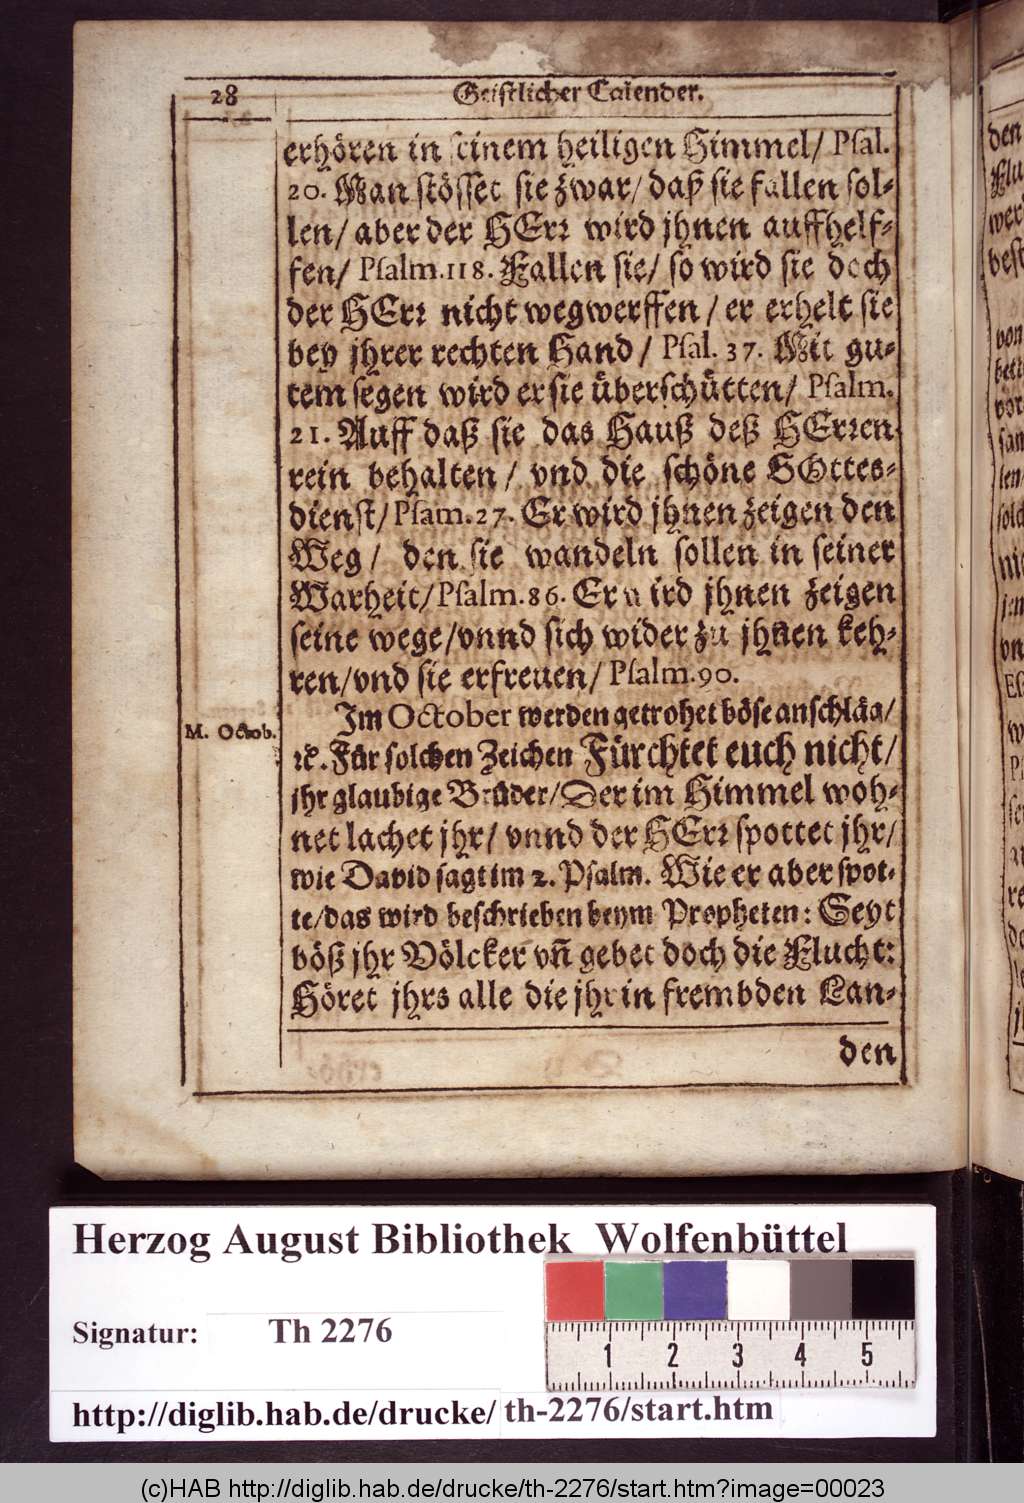 28
Geistlicher Calender.
erhören in seinem heiligen Himmel/ Psal.
20. Man stösset sie zwar/ daß sie fallen sol-
len/ aber der HErr wird jhnen auffhelf-
fen/ Psalm. 118. Fallen sie/ so wird sie doch
der HErr nicht wegwerffen/ er erhelt sie
bey jhrer rechten Hand/ Psal. 37. Mit gu-
tem segen wird er sie überschütten/ Psalm.
21. Auff daß sie das Hauß deß HErren
rein behalten/ vnd die schöne GOttes-
dienst/ Psam. 27. Er wird jhnen zeigen den
Weg/ den sie wandeln sollen in seiner
Warheit/ Psalm. 86. Er wird jhnen zeigen
seine wege/ vnnd sich wider zu jhnen keh-
ren/ vnd sie erfreuen/ Psalm. 90.
M. Octob.
Im October werden getrohet böse anschläg/
ꝛc. Für solchen Zeichen Fürchtet euch nicht/
jhr glaubige Brüder/ Der im Himmel woh-
net lachet jhr/ vnnd der HErr spottet jhr/
wie David sagt im 2. Psalm. Wie er aber spot-
te/ das wird beschrieben beym Propheten: Seyt
böß jhr Völcker vñ gebet doch die Flucht:
Höret jhrs alle die jhr in frembden Lan-
den
Herzog August Bibliothek Wolfenbüttel
Signatur: Th 2276
1 2 3 4 5
http://diglib.hab.de/drucke/ th-2276/start.htm
(c)HAB http://diglib.hab.de/drucke/th-2276/start.htm?image=00023